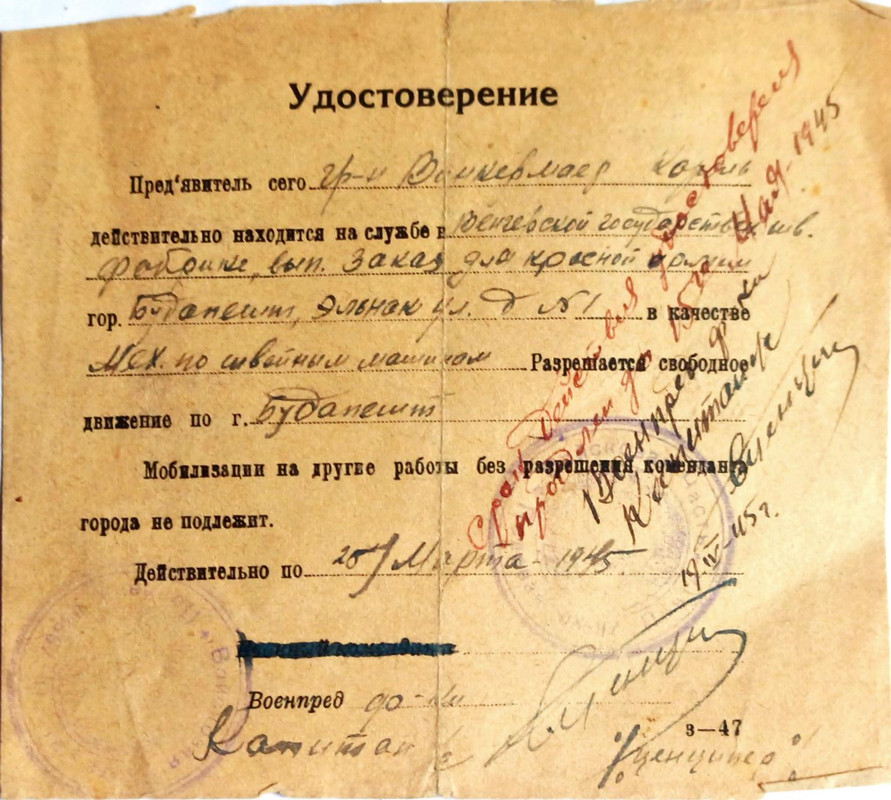 Удостоверение
Пред'явитель сего гр-н
действительно находится на службе в Венгерской государств. шв.
фабрике, вып. заказ для красной армии
гор. Будапешт, ул. д №1 в качестве
Мех. по швейным машинам Разрешается свободное
движение по г. Будапешт
Мобилизации на другие работы без разрешения коменданта
города не подлежит.
Действительно по 25 Марта - 1945
Военпред
Капитан
з—47
Срок действия удостоверения
продлен до 15го Мая - 1945
Военпред
Капитан
19.IV-45г.